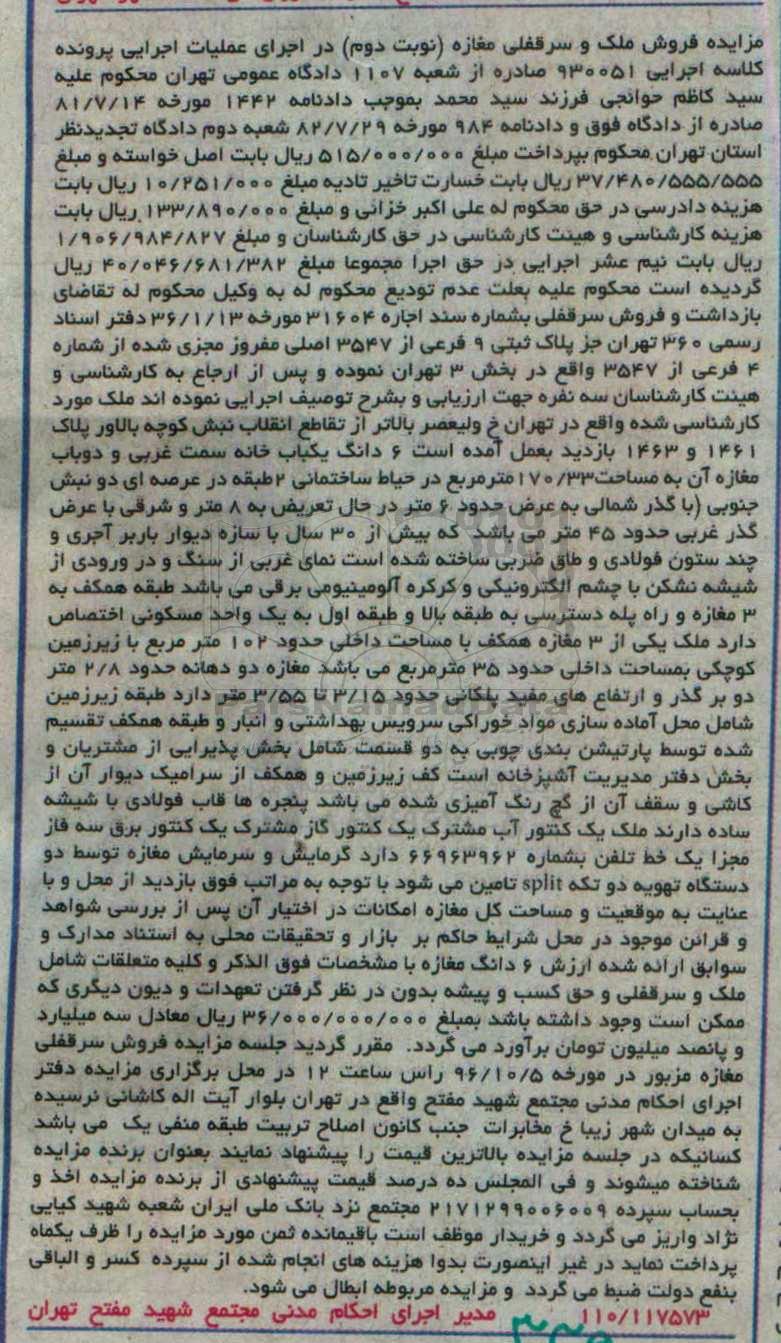 مزایده فروش ملک و سرقفلی مغازه (نوبت دوم) در اجرای عملیات اجرایی پرونده
کلاسه اجرایی ۹۳۰۰۵۱ صادره از شعبه ۱۱۰۷ دادگاه عمومی تهران محکوم علیه
سید کاظم حوانجی فرزند سید محمد بموجب دادنامه ۱۴۴۲ مورخه ۸۱/۷/۱۴
صادره از دادگاه فوق و دادنامه ۹۸۴ مورخه ۸۲/۷/۲۹ شعبه دوم دادگاه تجدیدنظر
استان تهران محکوم بپرداخت مبلغ ۵۱۵/۰۰۰/۰۰۰ ریال بابت اصل خواسته و مبلغ
۳۷/۴۸۰/۵۵۵/۵۵۵ ریال بابت خسارت تاخیر تادیه مبلغ ۱۰/۲۵۱/۰۰۰ ریال بابت
هزینه دادرسی در حق محکوم له علی اکبر خزائی و مبلغ ۱۳۳/۸۹۰/۰۰۰ ریال بابت
هزینه کارشناسی و هیئت کارشناسی در حق کارشناسان و مبلغ ۱/۹۰۶/۹۸۴/۸۲۷
ریال بابت نیم عشر اجرایی در حق اجرا مجموعا مبلغ ۴۰/۰۴۶/۶۸۱/۳۸۲ ریال
گردیده است محکوم علیه بعلت عدم تودیع محکوم له به وکیل محکوم له تقاضای
بازداشت و فروش سرقفلی بشماره سند اجاره ۳۱۶۰۴ مورخه ۳۶/۱/۱۳ دفتر اسناد
رسمی ۳۶۰ تهران جز پلاک ثبتی ۹ فرعی از ۳۵۴۷ اصلی مفروز مجزی شده از شماره
۴ فرعی از ۳۵۴۷ واقع در بخش ۳ تهران نموده و پس از ارجاع به کارشناسی و
هیئت کارشناسان سه نفره جهت ارزیابی و بشرح توصیف اجرایی نموده اند ملک مورد
کارشناسی شده واقع در تهران خ ولیعصر بالاتر از تقاطع انقلاب نبش کوچه بالاور پلاک
۱۴۶۱ و ۱۴۶۳ بازدید بعمل آمده است ۶ دانگ یکباب خانه سمت غربی و دوباب
مغازه آن به مساحت۱۷۰/۳۳مترمربع در حیاط ساختمانی ۲طبقه در عرصه ای دو نبش
جنوبی (با گذر شمالی به عرض حدود ۶ متر در حال تعریض به ۸ متر و شرقی با عرض
گذر غربی حدود ۴۵ متر می باشد که بیش از ۳۰ سال با سازه دیوار باربر آجری و
چند ستون فولادی و طاق ضربی ساخته شده است نمای غربی از سنگ و در ورودی از
شیشه نشکن با چشم الکترونیکی و کرکره آلومینیومی برقی می باشد طبقه همکف به
۳ مغازه و راه پله دسترسی به طبقه بالا و طبقه اول به یک واحد مسکونی اختصاص
دارد ملک یکی از ۳ مغازه همکف با مساحت داخلی حدود ۱۰۲ متر مربع با زیرزمین
کوچکی بمساحت داخلی حدود ۳۵ مترمربع می باشد مغازه دو دهانه حدود ۲/۸ متر
دو بر گذر و ارتفاع های مفید پلکانی حدود ۳/۱۵ تا ۳/۵۵ متر دارد طبقه زیرزمین
شامل محل آماده سازی مواد خوراکی سرویس بهداشتی و انبار و طبقه همکف تقسیم
شده توسط پارتیشن بندی چوبی به دو قسمت شامل بخش پذیرایی از مشتریان و
بخش دفتر مدیریت آشپزخانه است کف زیرزمین و همکف از سرامیک دیوار آن از
کاشی و سقف آن از گچ رنگ آمیزی شده می باشد پنجره ها قاب فولادی با شیشه
ساده دارند ملک یک کنتور آب مشترک یک کنتور گاز مشترک یک کنتور برق سه فاز
مجزا یک خط تلفن بشماره ۶۶۹۶۳۹۶۲ دارد گرمایش و سرمایش مغازه توسط دو
دستگاه تهویه دو تکه split تامین می شود با توجه به مراتب فوق بازدید از محل و با
عنایت به موقعیت و مساحت کل مغازه امکانات در اختیار آن پس از بررسی شواهد
و قرائن موجود در محل شرایط حاکم بر بازار و تحقیقات محلی به استناد مدارک و
سوابق ارائه شده ارزش ۶ دانگ مغازه با مشخصات فوق الذکر و کلیه متعلقات شامل
ملک و سرقفلی و حق کسب و پیشه بدون در نظر گرفتن تعهدات و دیون دیگری که
ممکن است وجود داشته باشد بمبلغ ۳۶/۰۰۰/۰۰۰/۰۰۰ ریال معادل سه میلیارد
و پانصد میلیون تومان برآورد می گردد. مقرر گردید جلسه مزایده فروش سرقفلی
مغازه مزبور در مورخه ۹۶/۱۰/۵ راس ساعت ۱۲ در محل برگزاری مزایده دفتر
اجرای احکام مدنی مجتمع شهید مفتح واقع در تهران بلوار آیت اله کاشانی نرسیده
به میدان شهر زیبا خ مخابرات جنب کانون اصلاح تربیت طبقه منفی یک می باشد
کسانیکه در جلسه مزایده بالاترین قیمت را پیشنهاد نمایند بعنوان برنده مزایده
شناخته میشوند و فی المجلس ده درصد قیمت پیشنهادی از برنده مزایده اخذ و
بحساب سپرده ۲۱۷۱۲۹۹۰۰۶۰۰۹ مجتمع نزد بانک ملی ایران شعبه شهید کیایی
نژاد واریز می گردد و خریدار موظف است باقیمانده ثمن مورد مزایده را ظرف یکماه
پرداخت نماید در غیر اینصورت بدوا هزینه های انجام شده از سپرده کسر و الباقی
بنفع دولت ضبط می گردد و مزایده مربوطه ابطال می شود.
۱۱۰/۱۱۷۵۷۳ مدیر اجرای احکام مدنی مجتمع شهید مفتح تهران